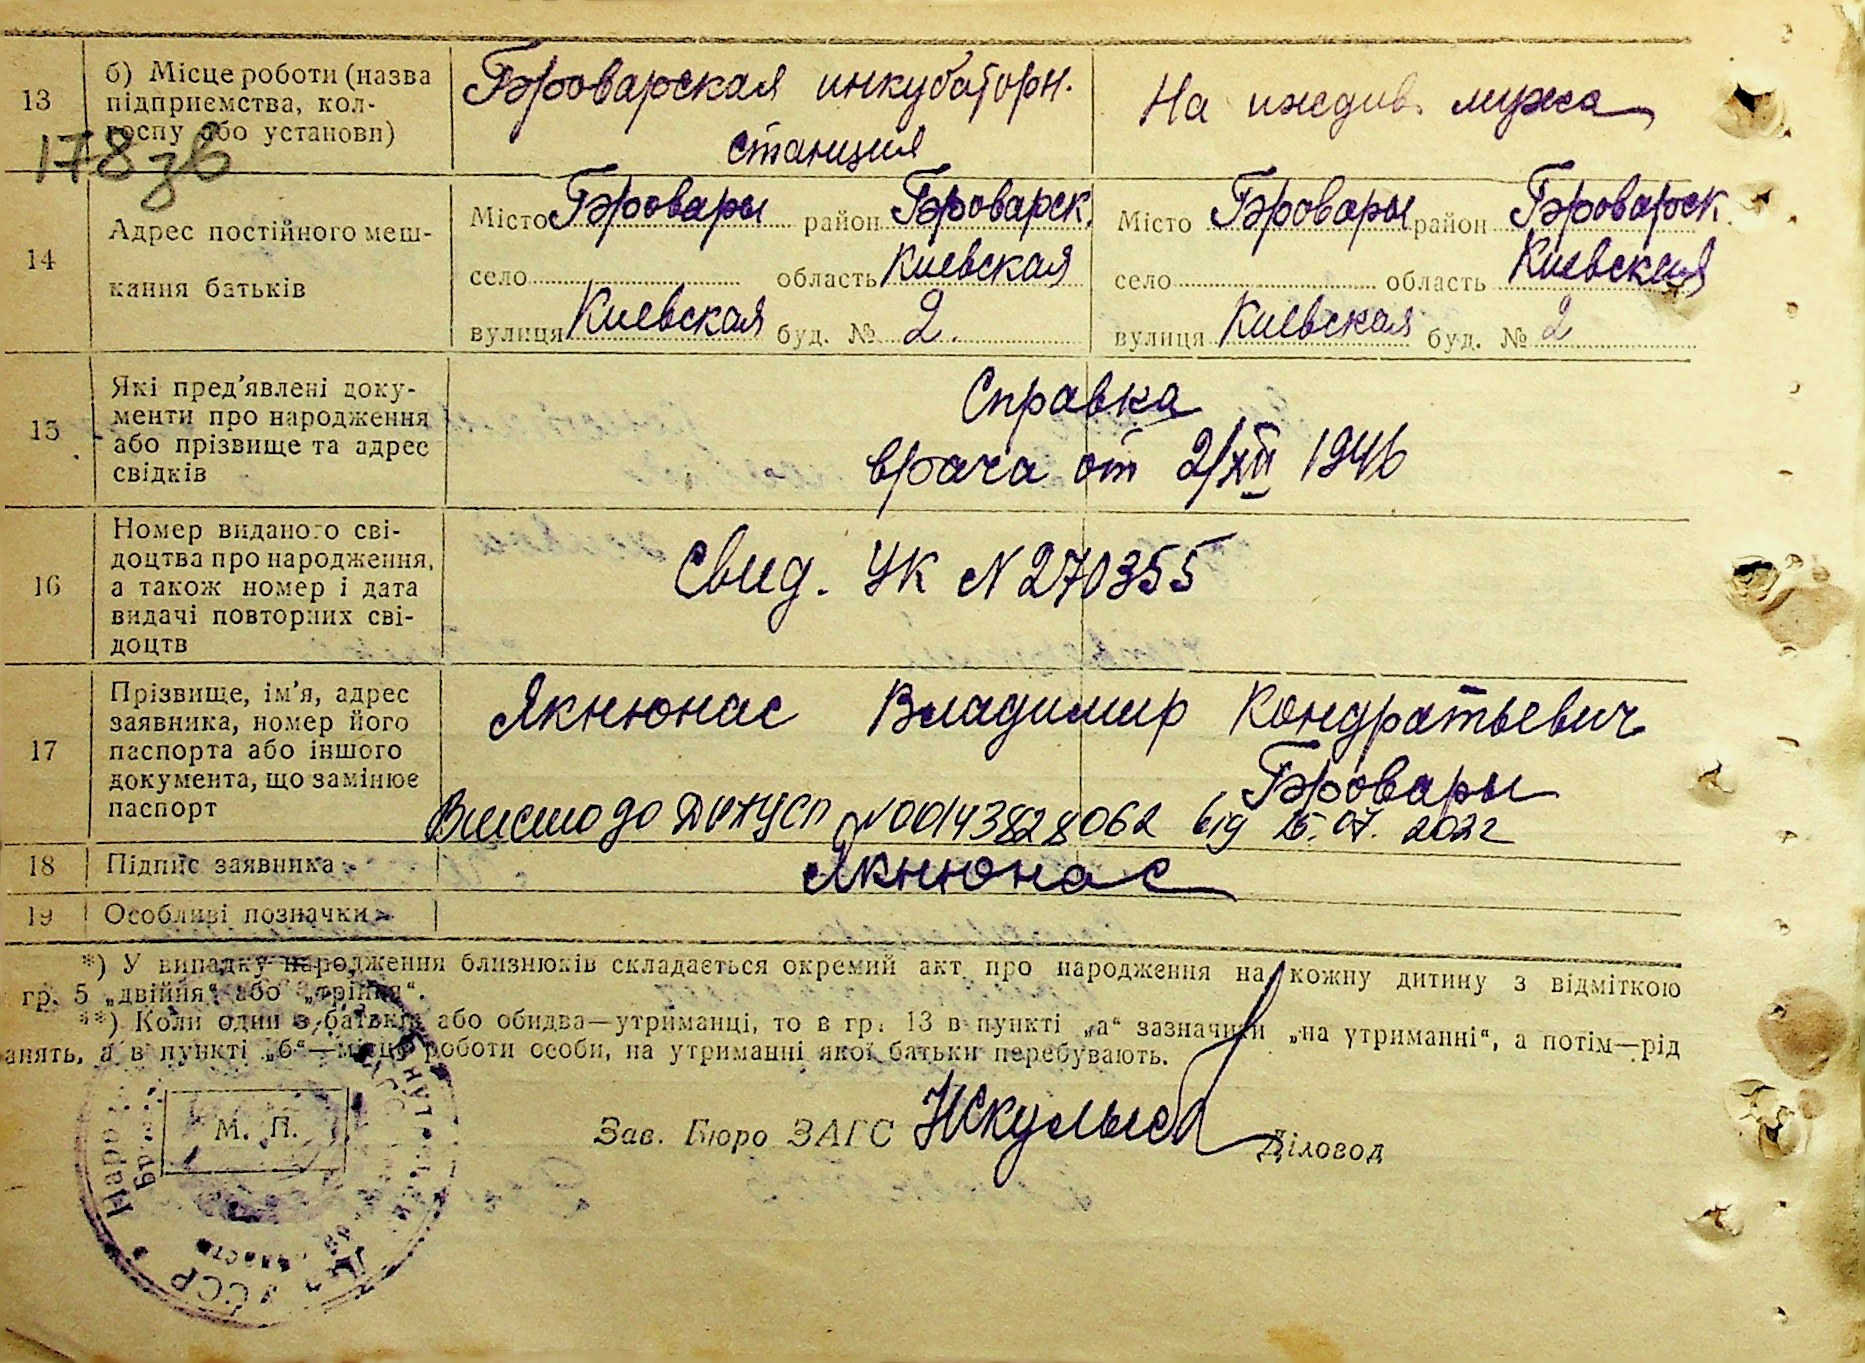 13
б) Місце роботи (назва
підприємства, кол-
госпу або установи)
Броварская инкубаторн.
станция
На иждив. мужа
178зв
14
Адрес постійного меш-
кання батьків
Місто Бровары район Броварск.
село область Киевская
вулиця Киевская буд. № 2.
Місто Бровары район Броварск.
село область Киевская
вулиця Киевская буд. № 2
15
Які пред'явлені доку-
менти про народження
або прізвище та адрес
свідків
Справка
врача от 2/XII 1946
16
Номер виданого сві-
доцтва про народження,
а також номер і дата
видачі повторних сві-
доцтв
Свид. УК N 270355
17
Прізвище, ім'я, адрес
заявника, номер його
паспорта або іншого
документа, що замінює
паспорт
Якнюнас Владимир Кондратьевич
Бровары
Внесено до ДРАЦСГ №00143828062 від 15.07.2022
18
Підпис заявника
Якнюнас
19
Особливі позначки
*) У випадку народження близнюків складається окремий акт про народження на кожну дитину з відміткою
гр. 5 „двійня“ або „трійня“.
**) Коли один з батьків або обидва—утриманці, то в гр. 13 в пункті „а“ зазначити „на утриманні“, а потім—рід
анять, а в пункті „б“—місце роботи особи, на утриманні якої батьки перебувають.
М. П.
Зав. Бюро ЗАГС
Діловод